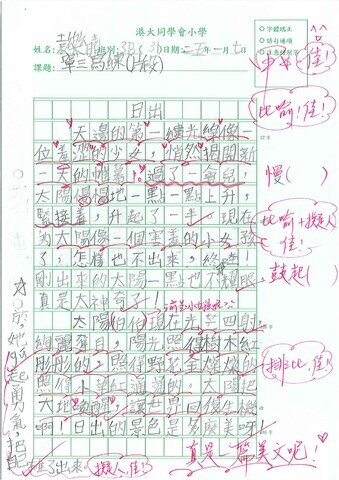 港大同學會小學
姓名: 班別: 3B(31) 日期:二十一月七日
課題: 單三寫練(片段)
字體矯正
語句通順
注意錯別字
佳!
日出
天邊的第一縷光線像一
位羞澀的少女,悄然揭開新
一天的帷幕!過了一會兒,
太陽慢慢地一點一點上升,
緊接着,升起了一半,現在
的太陽像一個害羞的小女孩
了,怎樣也不出來,終於!
剛出來的太陽一點也不耀眼
真是太神奇了!
太陽伯伯現在光芒四射
絢麗奪目,陽光照得樹木紅
彤彤的,照得野花金燦燦的
照得小草紅通通的,太陽把
大地喚醒,讓世界回復生機
啊!日出的景色是多麼美呀!
比喻!佳!
慢( )
比喻+擬人
佳!
鼓起( )
排比,佳!
真是一篇美文呢!
於,她鼓起勇氣把
出來了 擬人,佳!